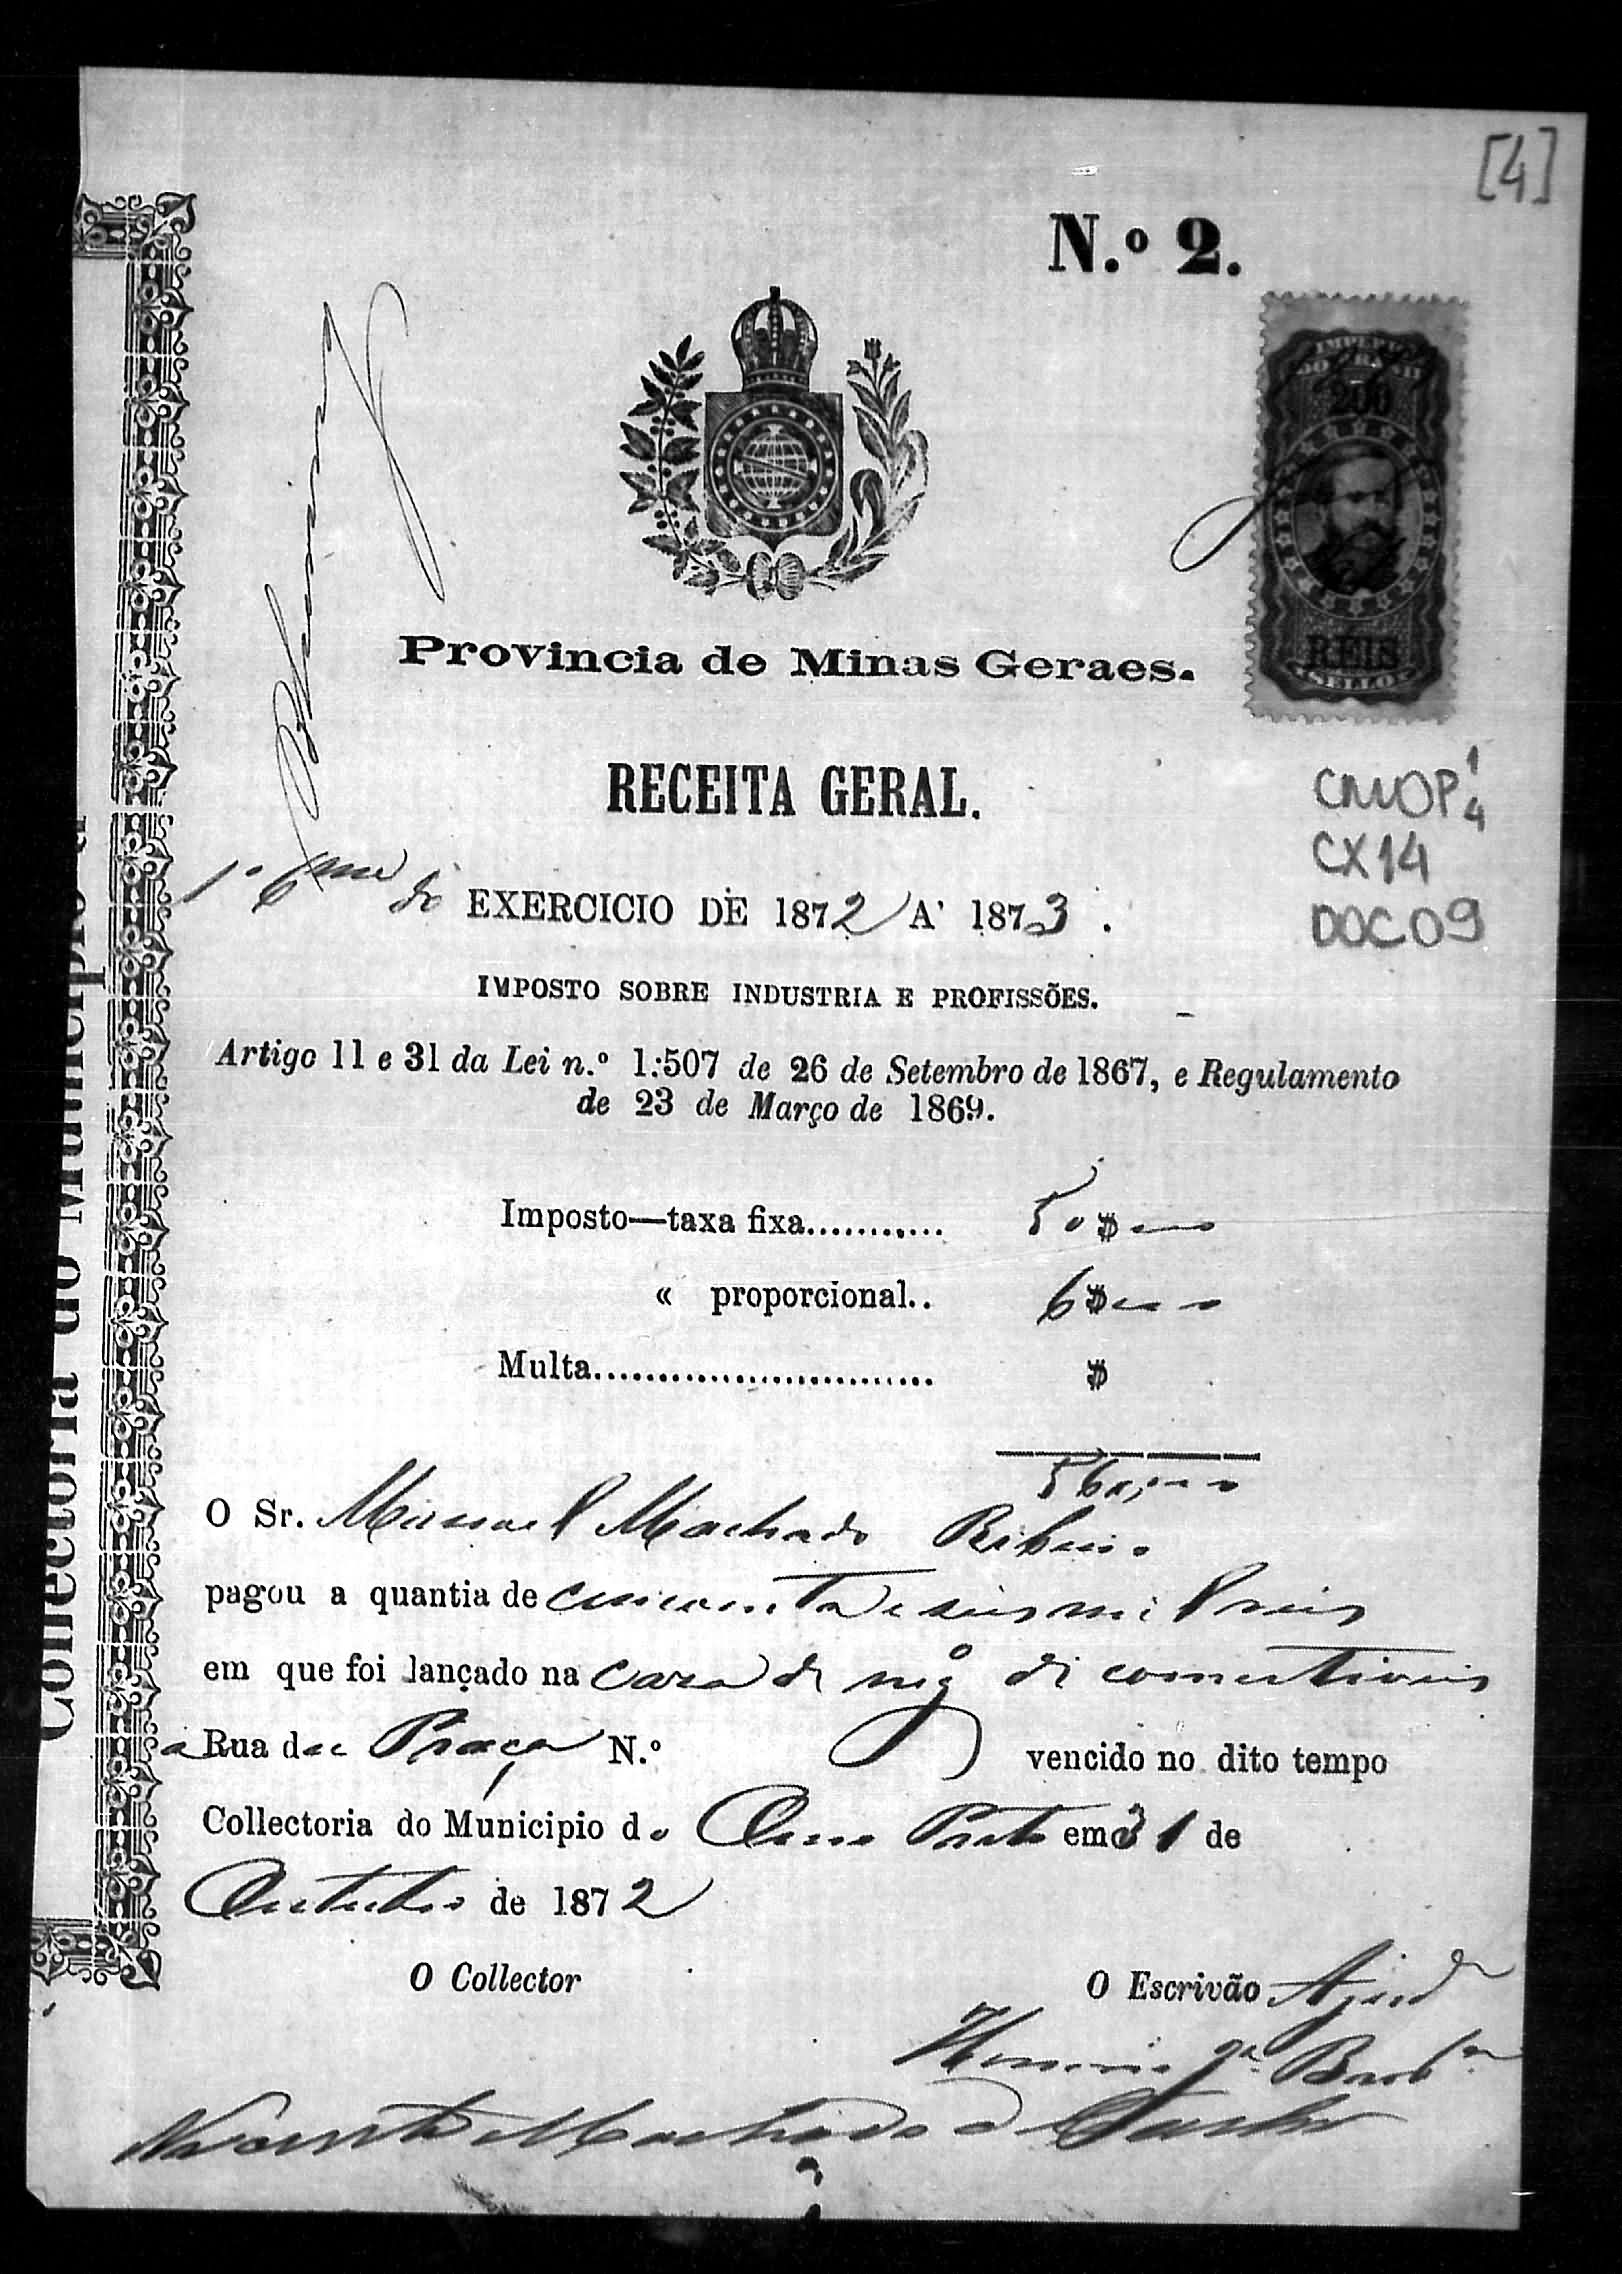 [4]
N.º 2.
IMPERIO
DO BRASIL
200
REIS
SELLO
Provincia de Minas Geraes.
RECEITA GERAL.
CMOP 1/4
CX14
DOC09
1º 6me do EXERCICIO DE 1872 A' 1873.
IMPOSTO SOBRE INDUSTRIA E PROFISSÕES.
Artigo 11 e 31 da Lei n.º 1:507 de 26 de Setembro de 1867, e Regulamento
de 23 de Março de 1869.
Imposto—taxa fixa........... 50$000
« proporcional.. 6$000
Multa........................... $
56$000
O Sr. Manoel Machado Ribeiro
pagou a quantia de cincoenta e seis mil reis
em que foi lançado na casa de nego de comestiveis
a Rua da Praça N.º vencido no dito tempo
Collectoria do Municipio do Ouro Preto em 31 de
Outubro de 1872
O Collector O Escrivão Ajude
Vicente Machado de Castro
Collectoria do Municipio d